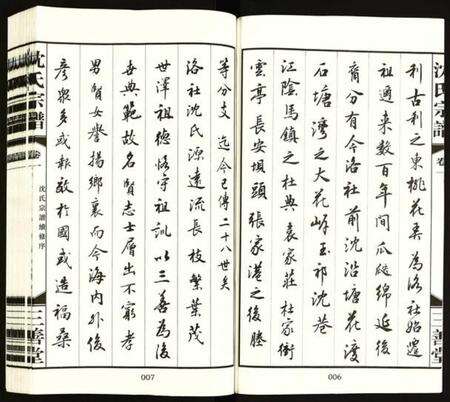 沈氏宗譜
卷一
利古利之東桃花美為洛社始遷
祖通来数百年間瓜瓞綿延後
裔分有今洛社前沈沿塘花渡
石塘灣之大花嶼玉祁沈巷
江陰馬鎮之杜典袁家莊杜家衖
雲亭長安垻頭張家港之後塍
006
等分支迄今已傳二十八世矣
洛社沈氏源遠流長枝繁葉茂
世澤祖德恪守祖訓以三善為後
世典範故名賢志士層出不窮孝
男賢女譽揚鄉裏而今海内外俊
彦衆多或報效於國或造福桑
沈氏宗譜
卷一
沈氏宗譜續修序
三善堂
007
三善堂